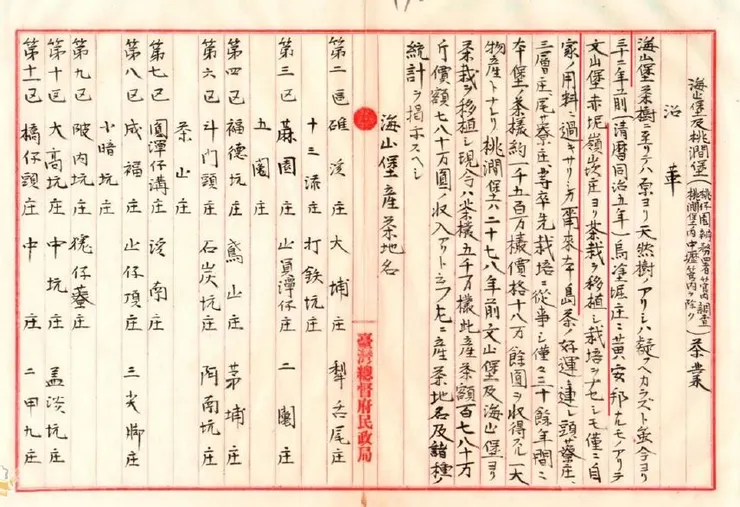 海山堡及桃澗堡(桃仔園辨務署管內調查
桃澗堡ノ內中壢管內ヲ除ク)茶業
沿革
海山堡茶樹ニ至リテハ原ヨリ天然樹ノアリシハ疑フヘカラスト雖今ヨリ
三十二年前(清曆同治五年)烏塗堀庄ニ黃安邦ナルモノアリテ
文山堡赤坭嶺崁庄ヨリ茶栽ヲ移植シ栽培ヲナセシモ僅ニ自
家ノ用料ニ過キサリシカ爾來本島茶ノ好運ニ連レ頭藔庄、
三層庄、尾藔庄、等卒先栽培ニ從事シ僅々二十餘年間ニ
本堡ノ茶樣約一千五百万欉價格十八万餘圓ヲ收得スル一大
物産トナレリ桃澗堡ハ二十七八年前文山堡及海山堡ヨリ
茶栽ヲ移植シ現今ハ茶樣五千万欉此産茶額百七八十万
斤價額七八十万圓ノ收入アリト云フ左ニ産茶地名及諸種ノ
統計ヲ揭示スヘシ
海山堡産茶地名
臺灣總督府民政局
第二區 碓溪庄 大埔庄 犁舌尾庄
十三流庄 打鉄坑庄
第三區 蔴園庄 山員潭仔庄 二鬮庄
五鬮庄
第四區 福德坑庄 鳶山庄 茅埔庄
第六區 斗門頭庄 石炭坑庄 陶南坑庄
茶山庄
第七區 圓潭仔溝庄 溪南庄
第八區 成福庄 山仔頂庄 三尖脚庄
小暗坑庄
第九區 陂內坑庄 獇仔藔庄
第十區 大高坑庄 中坑庄 盖淡坑庄
第十一區 橋仔頭庄 中庄 二甲九庄